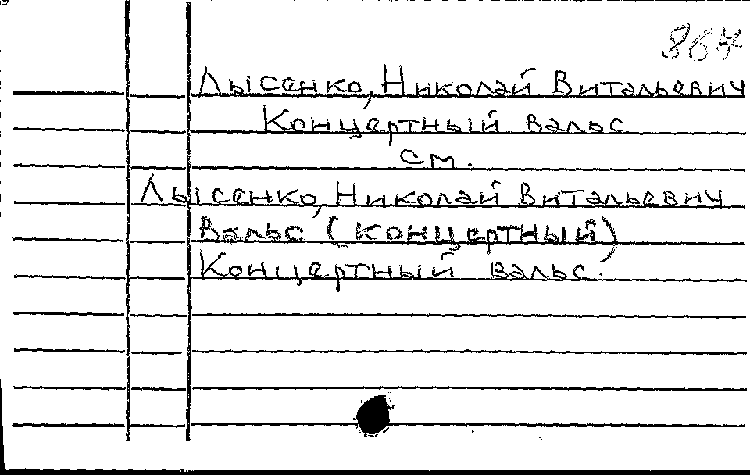 Лысенко, Николай Витальевич
Концертный вальс
см.
Лысенко, Николай Витальевич
Вальс (концертный)
Концертный вальс.